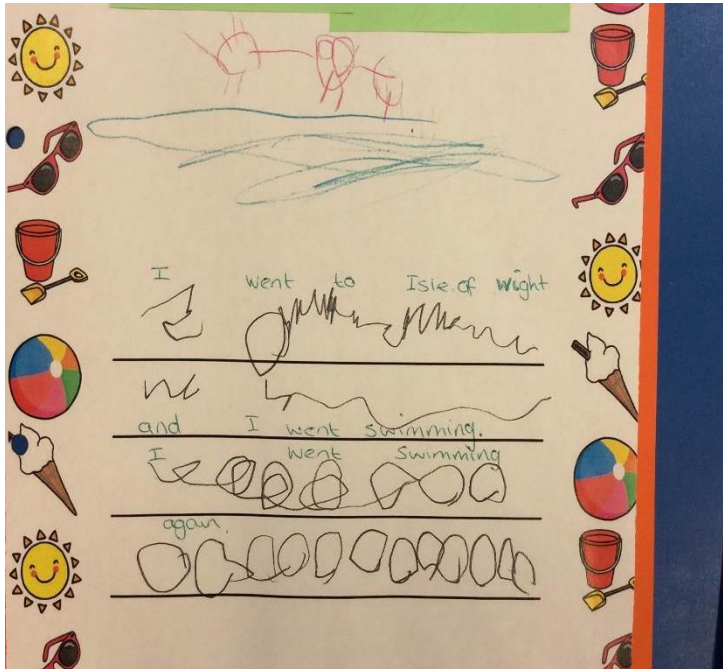 I went to Isle of Wight
and I went swimming.
I went swimming
again.